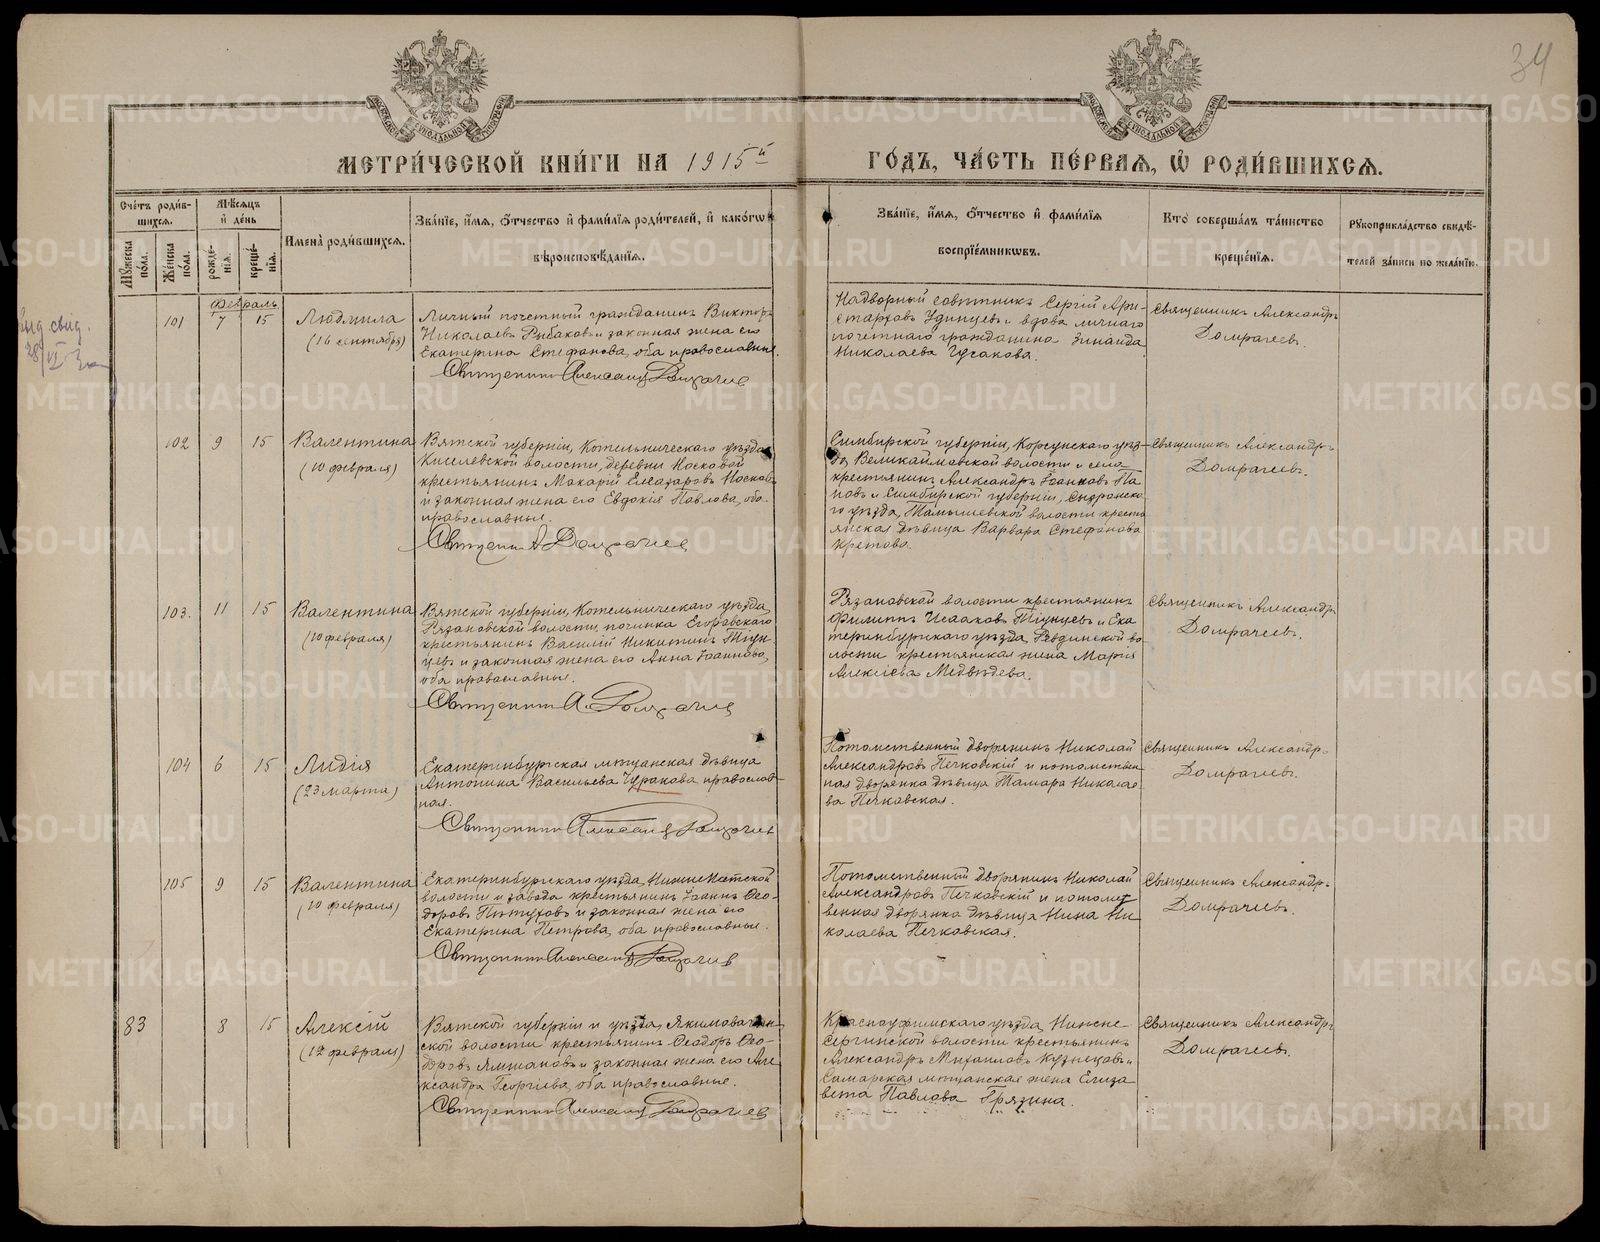 34
МОСКОВСКОЙ СѴНОДАЛЬНОЙ ТИПОГРАФІИ
МОСКОВСКОЙ СѴНОДАЛЬНОЙ ТИПОГРАФІИ
МЕТРИ́ЧЕСКОЙ КНИ́ГИ НА 1915й ГО́ДЪ, ЧА́СТЬ ПЕ́РВАЯ, Ѡ҆ РОДИ́ВШИХСЯ.
Сче́тъ роди́в-
шихся.
Мѣ́сяцъ
и҆ де́нь
Мꙋ́жеска
по́ла.
Же́нска
по́ла.
рожде́-
нія.
креще́-
нія.
И҆мена̀ роди́вшихся.
Зва́ніе, и҆́мя, ѻ҆́тчество и҆ фами́лія роди́телей, и҆ како́гѡ
вѣроисповѣ́данія.
Зва́ніе, и҆́мя, ѻ҆́тчество и҆ фами́лія
воспріе́мникѡвъ.
Кто̀ соверша́лъ та́инство
креще́нія.
Рꙋкоприкла́дство свидѣ́-
телей за́писи по жела́нію.
Февраль
101 7 15
Людмила
(16 сентября)
Личный почетный гражданинъ Викторъ
Николаевъ Рыбаковъ и законная жена его
Екатерина Стефанова, оба православные.
Священникъ Александръ Домрачевъ
Надворный совѣтникъ Сергій Ари-
старховъ Удинцевъ и вдова личнаго
почетнаго гражданина Зинаида
Николаева Гусакова.
Священникъ Александръ
Домрачевъ.
102 9 15
Валентина
(10 февраля)
Вятской губерніи, Котельническаго уѣзда
Киселевской волости, деревни Носковой
крестьянинъ Макарій Елеазаровъ Носковъ
и законная жена его Евдокія Павлова, оба
православные.
Священникъ А Домрачевъ
Симбирской губерніи, Корсунскаго уѣз-
да
крестьянинъ Александръ Іоанновъ Па
новъ и Симбирской губерніи, Сызранска-
го уѣзда, волости кресть
янская дѣвица Варвара Стефанова
Кретова.
Священникъ Александръ
Домрачевъ.
103. 11 15
Валентина
(10 февраля)
Вятской губерніи, Котельническаго уѣзда,
Рязановской волости, починка Егоровскаго
крестьянинъ Василій Никитинъ Тіун-
цевъ и законная жена его Анна Іоаннова,
оба православные.
Священникъ А. Домрачевъ
Рязановской волости крестьянинъ
Филиппъ Исааковъ Тіунцевъ и Ека
теринбургскаго уѣзда, Ревдинской во-
лости крестьянская жена Марія
Алексіева Медвѣдева.
Священникъ Александръ
Домрачевъ.
104 6 15
Лидія
(23 марта)
Екатеринбургская мѣщанская дѣвица
Антонина Васильева Чуракова православ-
ная.
Священникъ Александръ Домрачевъ
Потомственный дворянинъ Николай
Александровъ Печковскій и потомствен-
ная дворянка дѣвица Тамара Николае-
ва Печковская.
Священникъ Александръ
Домрачевъ.
105 9 15
Валентина
(10 февраля)
Екатеринбургскаго уѣзда, Нижне Исетской
волости и завода крестьянинъ Іоаннъ Ѳео-
доровъ Пѣтуховъ и законная жена его
Екатерина Петрова, оба православные.
Священникъ Александръ Домрачевъ
Потомственный дворянинъ Николай
Александровъ Печковскій и потомст
венная дворянка дѣвица Нина Ни-
колаева Печковская.
Священникъ Александръ
Домрачевъ.
83 8 15
Алексій
(12 февраля)
Вятской губерніи и уѣзда,
ской волости крестьянинъ Ѳеодоръ Ѳео-
доровъ и законная жена его Але
ксандра Георгіева, оба православные.
Священникъ Александръ Домрачевъ
Красноуфимскаго уѣзда, Нижне-
Сергинской волости крестьянинъ
Александръ Михаиловъ Кузнецовъ и
Самарская мѣщанская жена Елиза
вета Павлова Грязина.
Священникъ Александръ
Домрачевъ.
METRIKI.GASO-URAL.RU